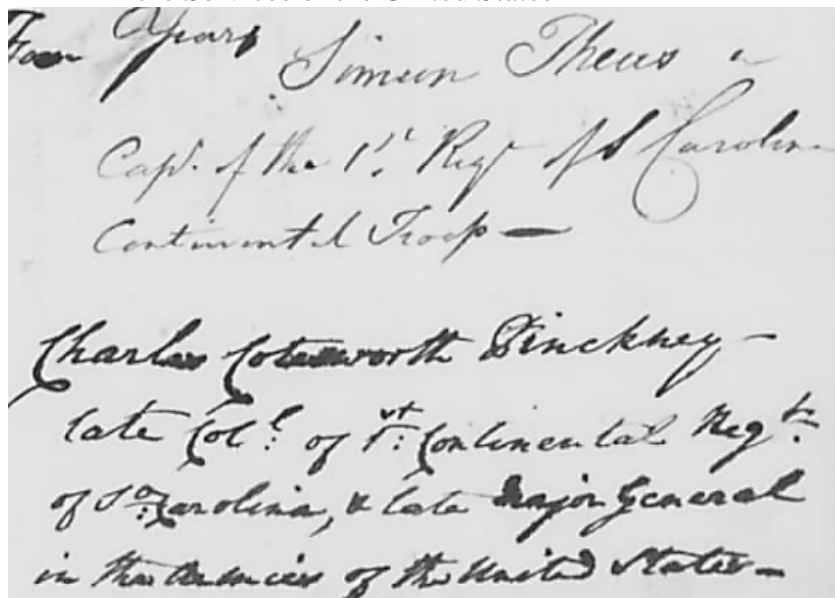 Years Simeon Theus
Capt. of the 1st Regt of S Carolina
Continental Troops —
Charles Cotesworth Pinckney —
late Coll: of 1st: Continental Regt:
of So: Carolina, & late Major General
in the Armies of the United States —